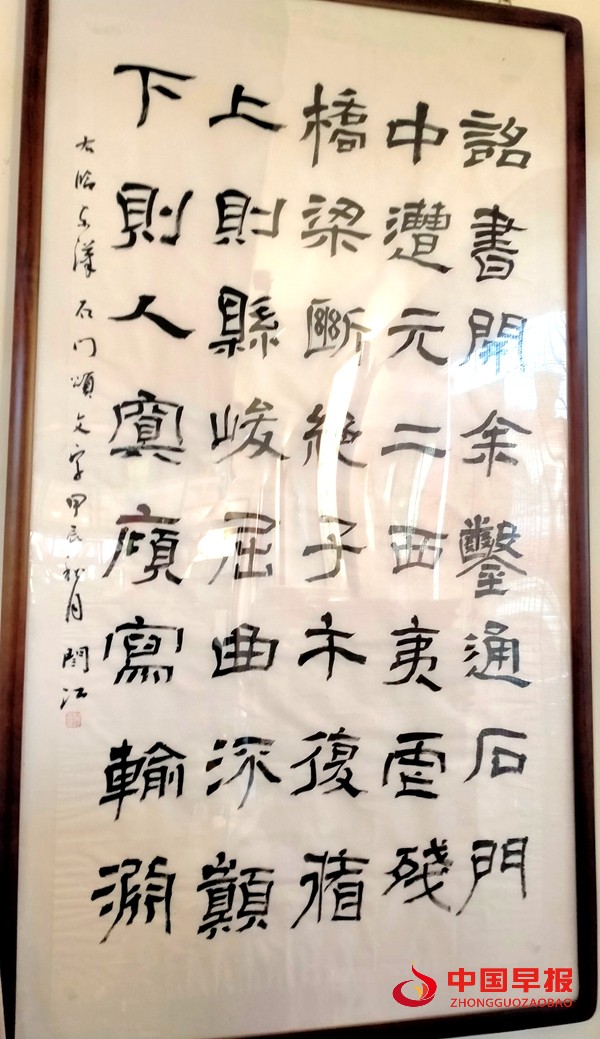 詔書開余鑿通石門
中遭元二西夷虐殘
橋梁斷絶子午復循
上則縣峻屈曲汖顛
下則人寞廎寫輸淵
右临东漢石门頌文字甲辰秋月閆江
中国早报
ZHONGGUOZAOBAO